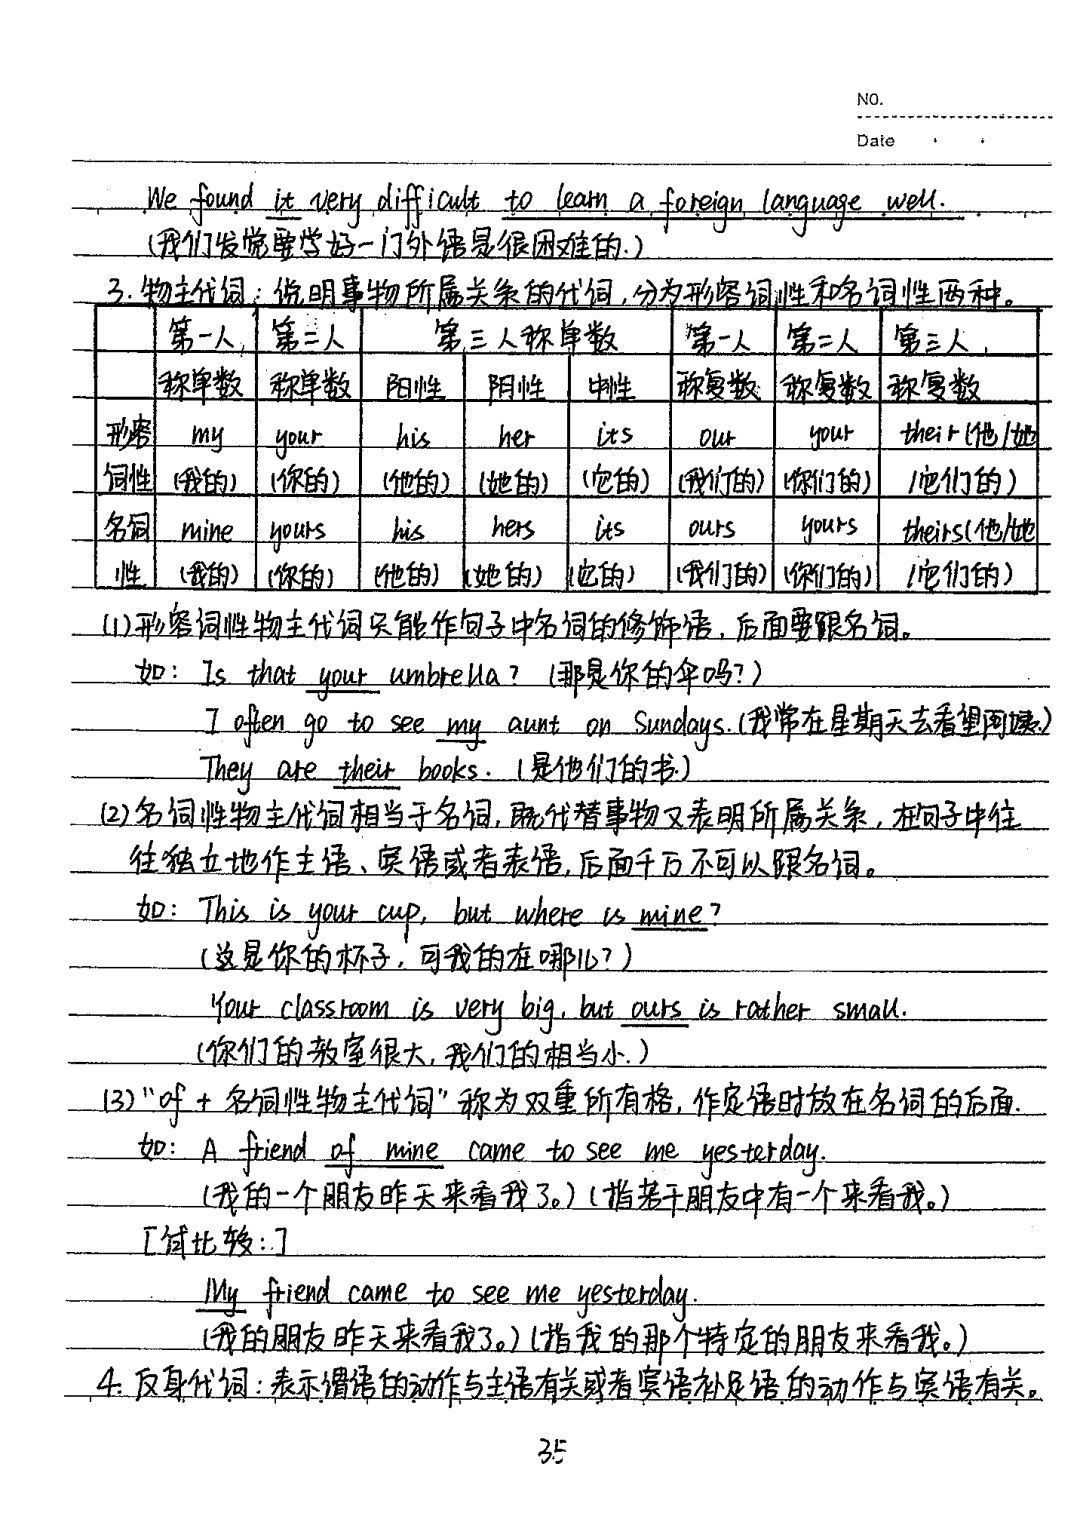 NO.
Date
We found it very difficult to learn a foreign language well.
(我们发觉要学好一门外语是很困难的.)
3.物主代词:说明事物所属关系的代词,分为形容词性和名词性两种。
第一人 第二人 第三人称单数 第一人 第二人 第三人
称单数 称单数 阳性 阴性 中性 称复数 称复数 称复数
形容 my your his her its our your their(他/她
词性 (我的) (你的) (他的) (她的) (它的) (我们的) (你们的) /它们的)
名词 mine yours his hers its ours yours theirs(他/她
性 (我的) (你的) (他的) (她的) (它的) (我们的) (你们的) /它们的)
(1)形容词性物主代词只能作句子中名词的修饰语,后面要跟名词。
如: Is that your umbrella? (那是你的伞吗?)
I often go to see my aunt on Sundays.(我常在星期天去看望阿姨.)
They are their books. (是他们的书.)
(2)名词性物主代词相当于名词,既代替事物又表明所属关系,在句子中往
往独立地作主语、宾语或者表语,后面千万不可以跟名词。
如: This is your cup, but where is mine?
(这是你的杯子,可我的在哪儿?)
Your classroom is very big, but ours is rather small.
(你们的教室很大,我们的相当小.)
(3)"of + 名词性物主代词"称为双重所有格,作定语时放在名词的后面.
如: A friend of mine came to see me yesterday.
(我的一个朋友昨天来看我了。)(指若干朋友中有一个来看我。)
[试比较:]
My friend came to see me yesterday.
(我的朋友昨天来看我了。)(指我的那个特定的朋友来看我。)
4.反身代词:表示谓语的动作与主语有关或者宾语补足语的动作与宾语有关。
35